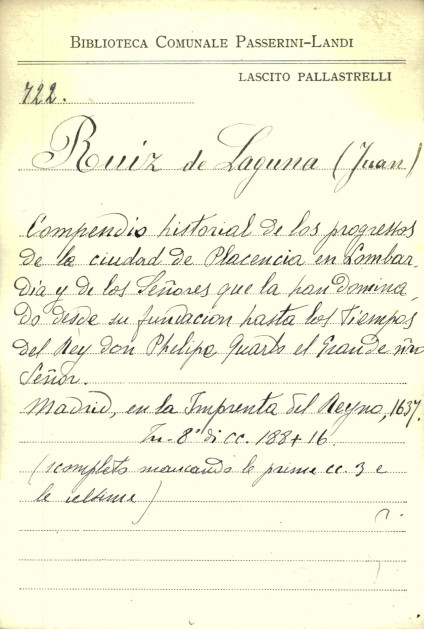 BIBLIOTECA COMUNALE PASSERINI-LANDI
LASCITO PALLASTRELLI
722.
Ruiz de Laguna (Juan)
Compendio historial de los progressos
de la ciudad de Placencia en Lombar,
dia y de los Señores que la han domina,
do desde su fundacion hasta los tiempos
del Rey don Phelipe Quarto el Grande ñro
Señor.
Madrid, en la Imprenta del Reyno, 1637.
In-8° di cc. 188+16.
(scompleto mancando le prime cc. 3 e
le ultime)